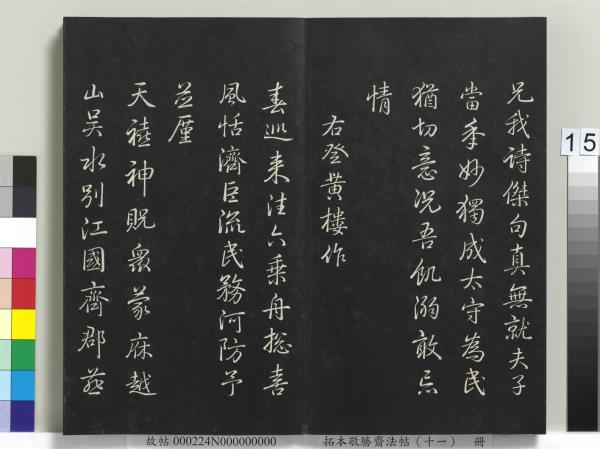 兄我詩傑句真無就夫子
當年妙獨成太守為民
猶切意況吾飢溺敢忘
情
右登黃樓作
春巡来往六乘舟揔喜
風恬濟巨流民務河防予
並厪
天禧神貺衆蒙庥越
山吳水別江國齊郡燕
故帖 000224N000000000
拓本敬勝齋法帖（十一） 冊
15